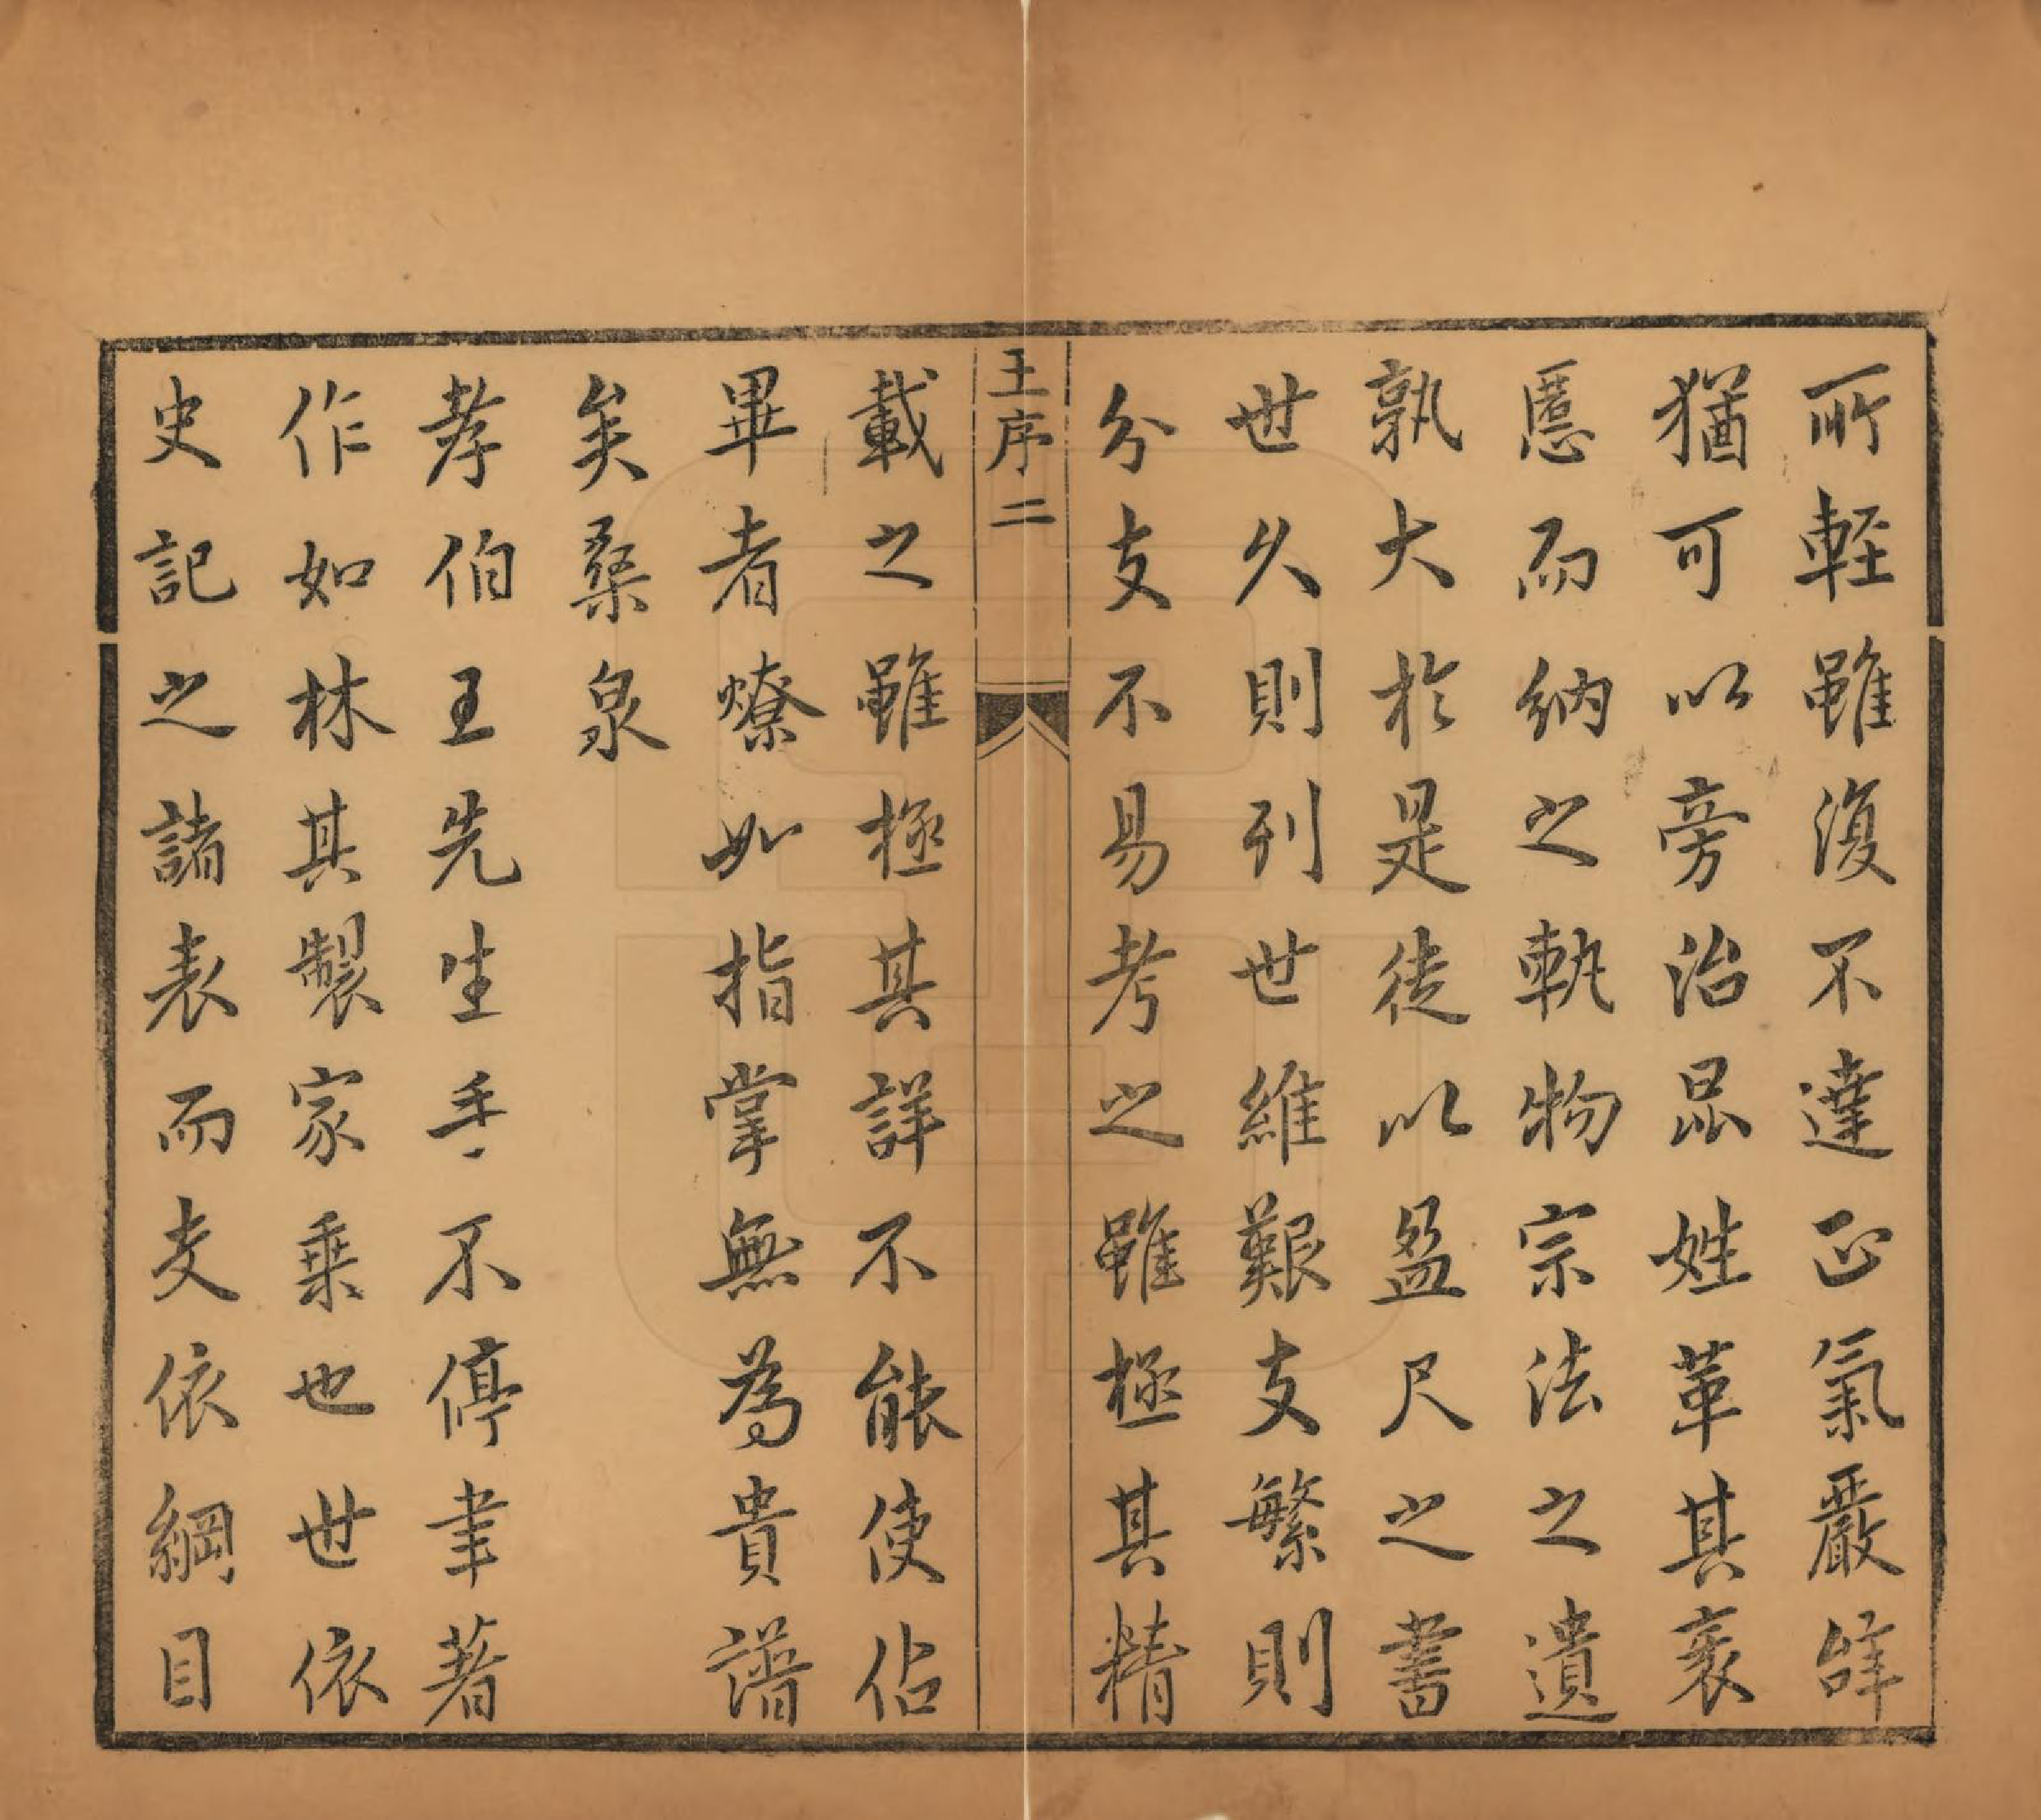 所輕雖復不達正氣嚴辭
猶可以旁治品姓革其衺
慝而納之執物宗法之遺
孰大於是徒以盈尺之書
世久則刊世維艱支繁則
分支不易考之雖極其精
王序二
載之雖極其詳不能使佔
畢者燎如指掌無為貴譜
矣桑泉
孝伯王先生手不停聿著
作如林其製家乗也世依
史記之諸表而支依綱目